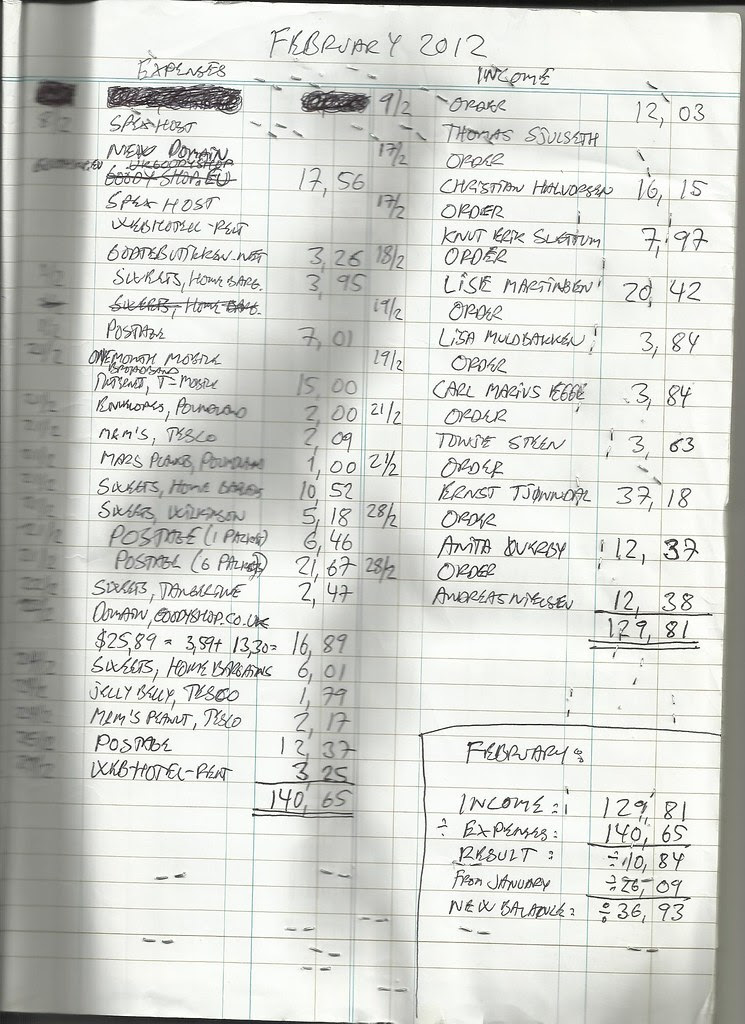 FEBRUARY 2012
EXPENSES
SPEX HOST
NEW DOMAIN
UKGOODYSHOP
GOODY-SHOP.EU 17,56
SPEX HOST
WEBHOTEL-RENT
GODTEBUTIKKEN.NET 3,26
SWEETS, HOME BARG. 3,95
SWEETS, HOME BARG.
POSTAGE 7,01
ONE MONTH MOBILE
BROADBAND
INTERNET, T-MOBILE 15,00
ENVELOPES, POUNDLAND 2,00
M&M'S, TESCO 2,09
MARS PLANETS, POUNDLAND 1,00
SWEETS, HOME BARGAINS 10,52
SWEETS, WILKINSON 5,18
POSTAGE (1 PACKET) 6,46
POSTAGE (6 PACKET) 21,67
SWEETS, TANGERINE 2,47
DOMAIN, GOODYSHOP.CO.UK
$25,89 = 3,59+ 13,30= 16,89
SWEETS, HOME BARGAINS 6,01
JELLY BELLY, TESCO 1,79
M&M'S PEANUT, TESCO 2,17
POSTAGE 12,37
WEBHOTEL-RENT 3,25
140,65
INCOME
9/2 ORDER 12,03
THOMAS SJULSETH
17/2 ORDER
CHRISTIAN HALVORSEN 16,15
17/2 ORDER
KNUT ERIK SLETTUM 7,97
18/2 ORDER
LISE MARTINSEN 20,42
19/2 ORDER
LISA MULDBAKKEN 3,84
19/2 ORDER
CARL MARIUS 3,84
21/2 ORDER
STEEN 3,63
21/2 ORDER
ERNST TJØNNDAL 37,18
28/2 ORDER
ANITA 12,37
28/2 ORDER
ANDREAS NIELSEN 12,38
129,81
FEBRUARY:
INCOME: 129,81
÷ EXPENSES: 140,65
RESULT: ÷10,84
FROM JANUARY ÷26,09
NEW BALANCE: ÷36,93